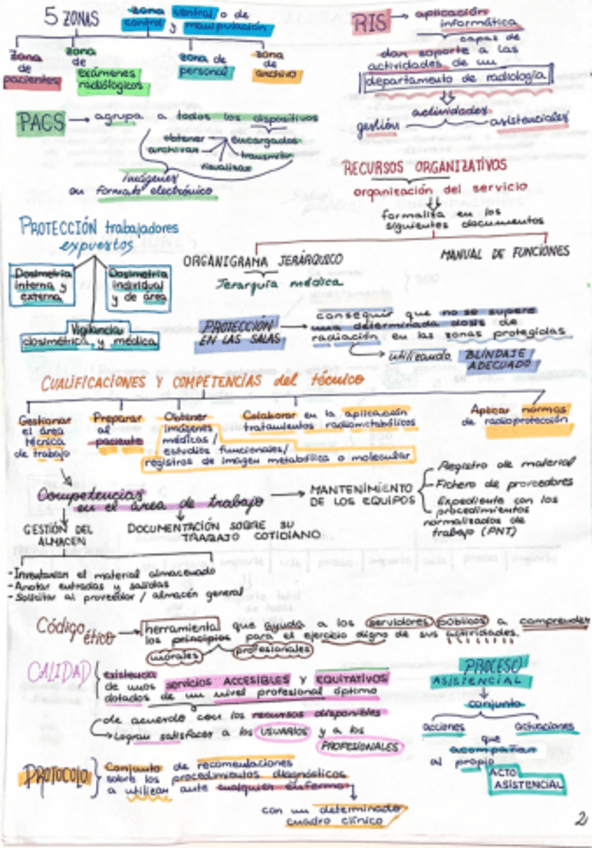 5 ZONAS
zona central o de
control y manipulación
zona
de
pacientes
zona
de
exámenes
radiológicos
zona de
personal
zona
de
archivo
RIS → aplicación
informática
capaz de
dan soporte a las
actividades de un
departamento de radiología
actividades
gestión
asistenciales
PACS → agrupa a todos los dispositivos
encargados
obtener
archivar
transmitir
visualizar
imágenes
en formato electrónico
RECURSOS ORGANIZATIVOS
organización del servicio
formaliza en los
siguientes documentos
ORGANIGRAMA JERÁRQUICO
Jerarquía médica
MANUAL DE FUNCIONES
PROTECCIÓN trabajadores
expuestos
Dosimetría
interna y
externa
Dosimetría
individual
y de área
Vigilancia
dosimétrica y médica
PROTECCIÓN
EN LAS SALAS
conseguir que no se supere
una determinada dosis de
radiación en las zonas protegidas
utilizando BLINDAJE
ADECUADO
CUALIFICACIONES Y COMPETENCIAS del técnico
Gestionar
el área
técnica
de trabajo
Preparar
al
paciente
Obtener
imágenes
médicas /
estudios funcionales/
registros de imagen metabólica o molecular
Colaborar en la aplicación
tratamientos radiometabólicos
Aplicar normas
de radioprotección
Competencias
en el área de trabajo
MANTENIMIENTO
DE LOS EQUIPOS
- Registro de material
- Fichero de proveedores
- Expediente con los
procedimientos
normalizados de
trabajo (PNT)
GESTIÓN DEL
ALMACEN
DOCUMENTACIÓN SOBRE SU
TRABAJO COTIDIANO
- Inventarian el material almacenado
- Anotar entradas y salidas
- Solicitar al proveedor / almacén general
Código
ético
herramienta que ayuda a los servidores públicos a comprender
los principios para el ejercicio digno de sus actividades.
morales
profesionales
CALIDAD
existencia
de unos servicios ACCESIBLES Y EQUITATIVOS
dotados de un nivel profesional óptimo
de acuerdo con los recursos disponibles
Logran satisfacer a los USUARIOS y a los
PROFESIONALES
PROCESO
ASISTENCIAL
conjunto
acciones
actuaciones
que
acompañan
al propio
ACTO
ASISTENCIAL
PROTOCOLO
Conjunto de recomendaciones
sobre los procedimientos diagnósticos
a utilizar ante cualquier enfermo
con un determinado
cuadro clínico
2